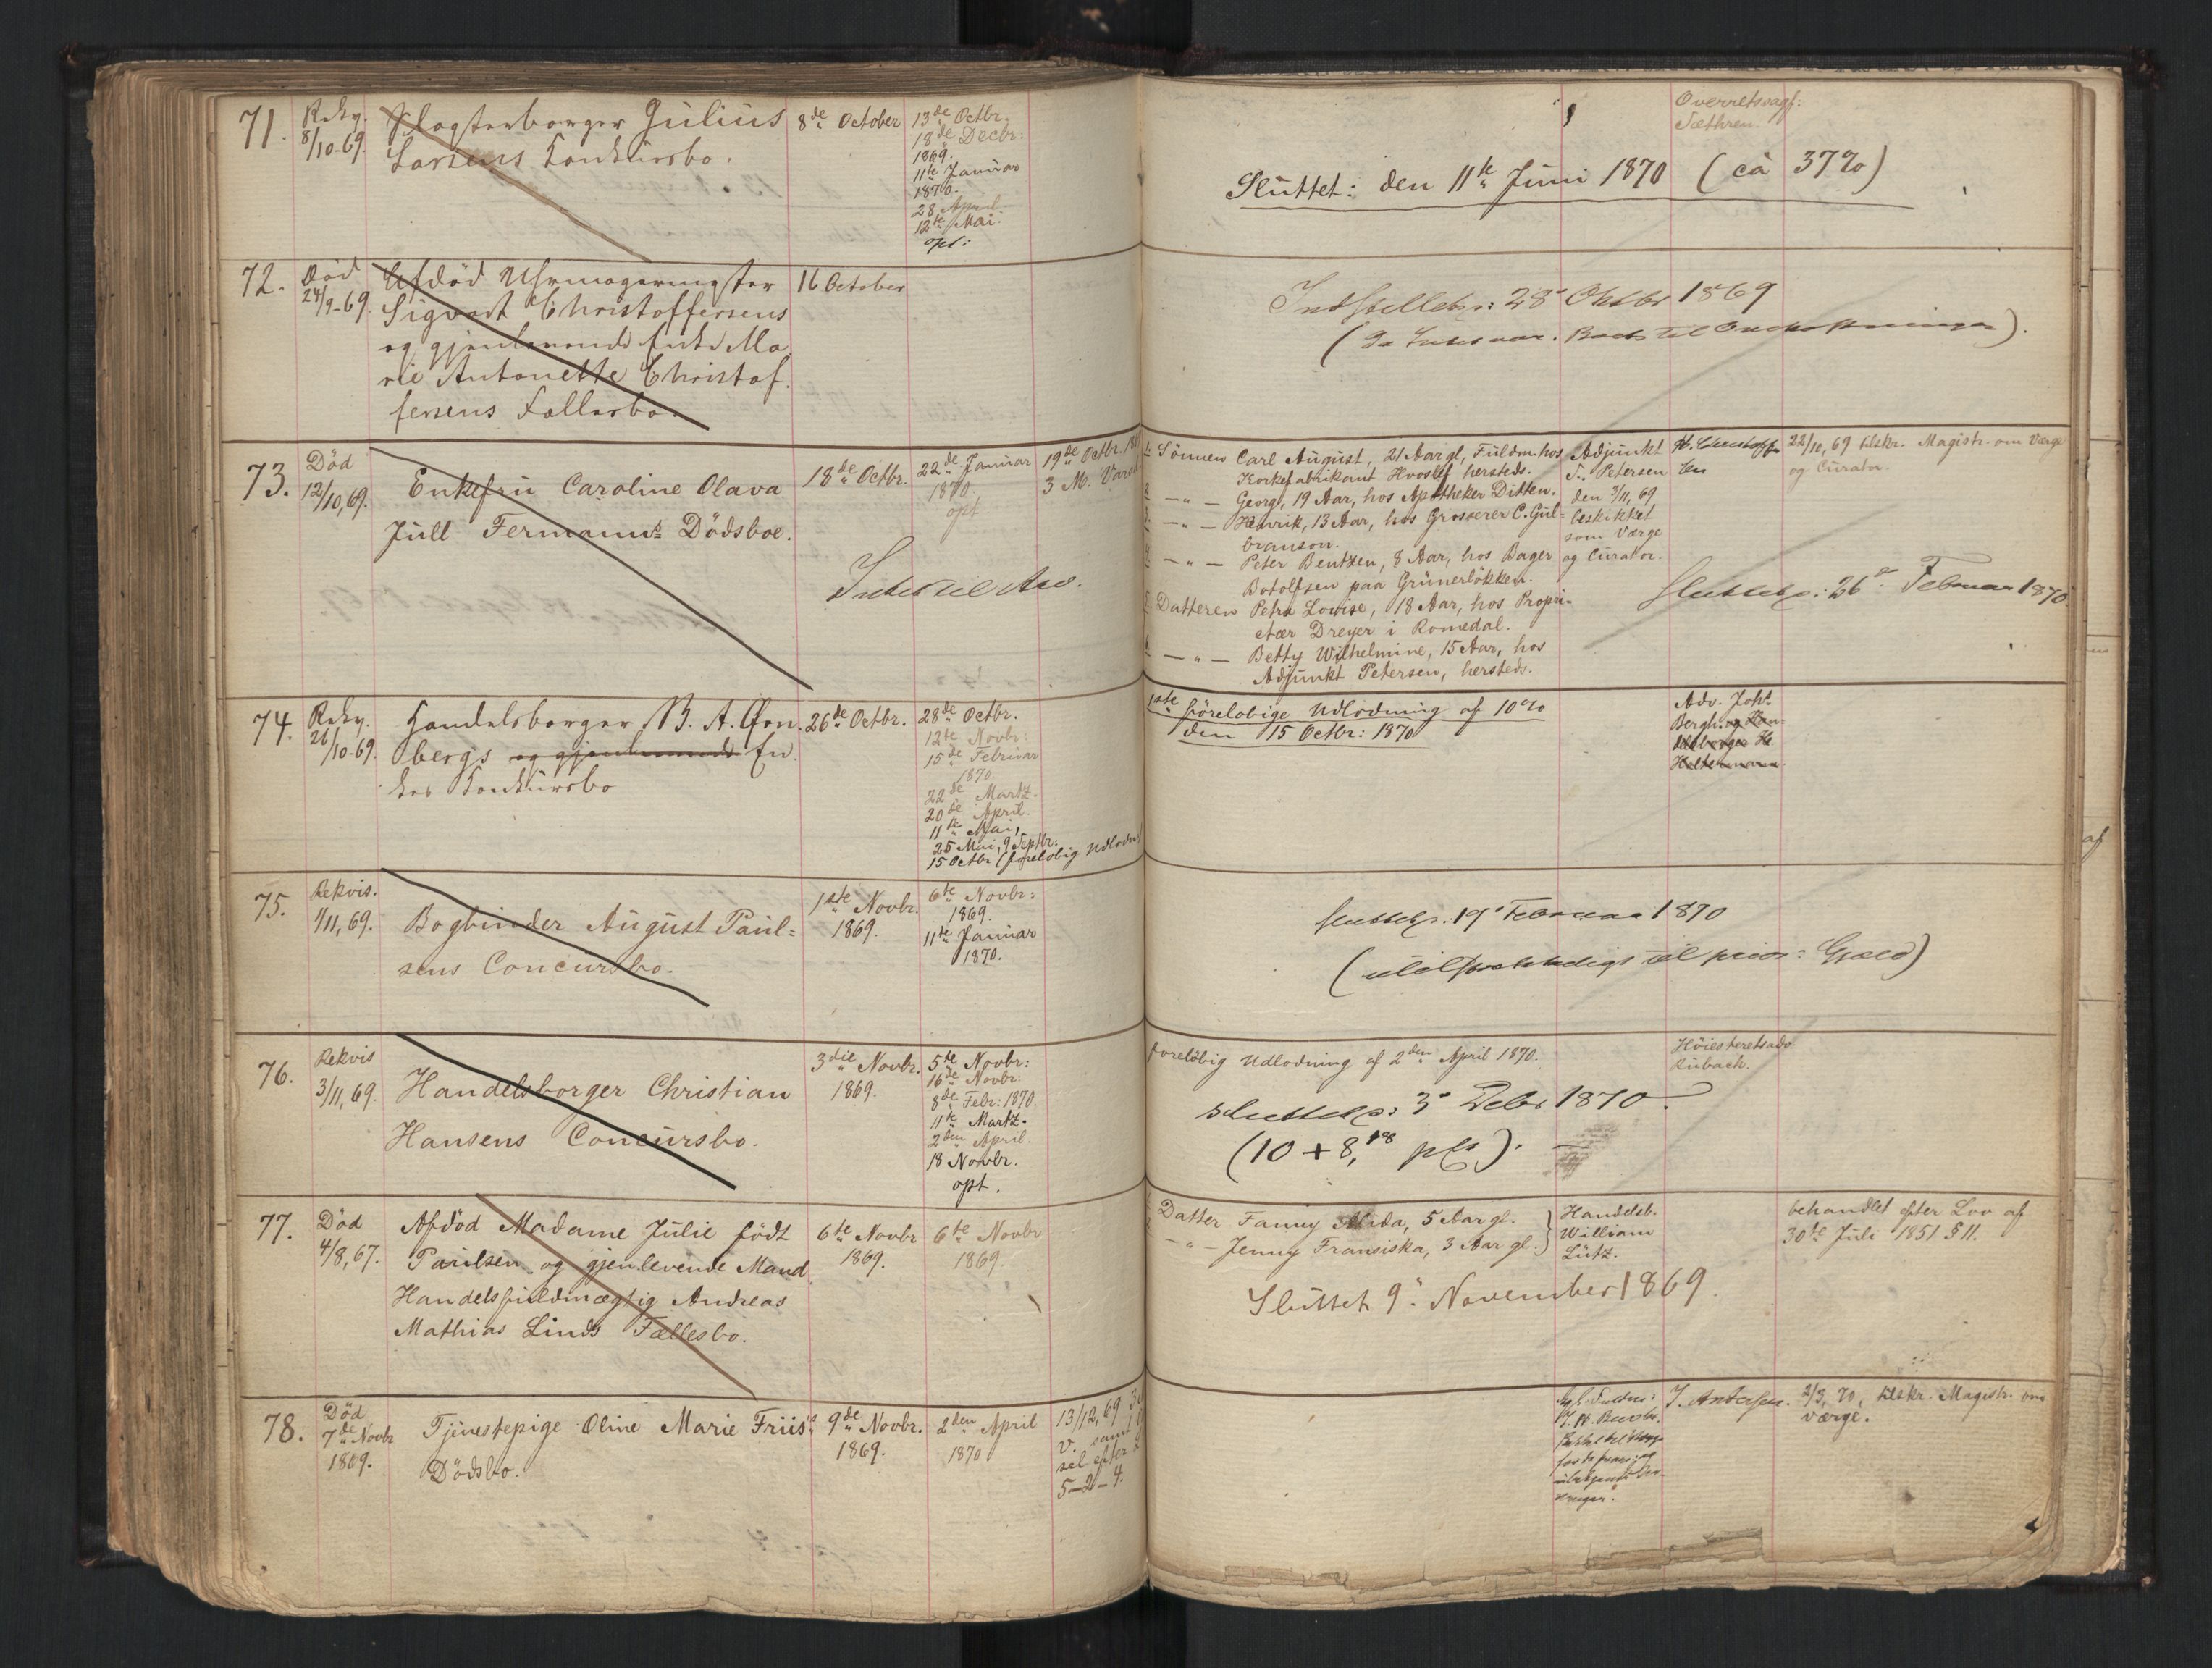 71.
Rekv.
8/10-69.
Slagterborger Julius
Larsens Konkursbo.
8de October
13de Octbr.
18de Decbr:
1869.
11te Januar
1870.
28 April
12te Mai.
opt:
Overretssagf:
Sæthren.
Sluttet: den 11te Juni 1870 (cà 37%)
72.
Død
24/9-69.
Afdød Uhrmagermester
Sigvart Christoffersens
og gjenlevende Enke Ma
rie Antonette Christof
fersens Fællesbo.
16 October
28 Oktbr 1869
73.
Død
12/10,69.
Enkefru Caroline Olava
Jull Fermanns Dödsboe.
18de Octbr.
22de Januar
1870
opt
19de Octbr.
3 M.
1. Sönnen Carl August, 21 Aar gl, Fuldm. hos
Korkefabrikant Hooslef hersteds.
— " — Georg, 19 Aar, hos Apotheker Ditten.
— " — Henrik, 13 Aar, hos Grosserer C. Gul-
branson.
— " — Peter Bentzen, 8 Aar, hos Bager
Botolfsen paa Grünerløkken.
Datteren Petra Lovise, 18 Aar, hos Propri-
etær Dreyer i Romedal.
— " — Betty Wilhelmine, 15 Aar, hos
Adjunkt Petersen, hersteds.
Adjunkt
Petersen
den 3/11, 69
beskikket
som Værge
og Curator.
22/10, 69 tilskr. Magistr. om Værge
og Curator.
26 Februar 1870
74.
Rekv.
26/10-69.
Handelsborger B. A. Örn
bergs og gjenlevende En
kes Konkursbo
26de Octbr.
28de Octbr.
12te Novbr:
15de Februar
1870
22de Martz.
20de April.
11te Mai,
25 Mai, 9 Septbr:
15 Octbr (foreløbig Udlodn
1ste föreløbige Udlodning af 10%
den 15 Octbr: 1870
Adv. Johs
Bergh. og Han-
delsborger H
75.
Rekvis.
1/11, 69.
Bogbinder August Paul-
sens Concursbo.
1ste Novbr.
1869.
6te Novbr:
1869.
11te Januar
1870.
19 Februar 1870
( til prior: Gjæld)
76.
Rekvis
3/11, 69.
Handelsborger Christian
Hansens Concursbo.
3die Novbr.
1869.
5te Novbr:
16de Novbr:
8de Febr: 1870.
11te Martz.
2den April.
18 Novbr.
opt.
foreløbig Udlodning af 2den April 1870.
3 Debr 1870.
(10 + 8,18 pCt).
Høiesteretsadv.
Rubach.
77.
Død
4/8, 67.
Afdød Madame Julie født
Paulsen og gjenlevende Mand
Handelsfuldmægtig Andreas
Mathias Linds Fællesbo.
6te Novbr
1869.
6te Novbr
1869.
Datter Fanny Alida, 5 Aar gl.
— " — Jenny Fransiska, 3 Aar gl.
Handelsb.
William
Lütz.
behandlet efter Lov af
30te Juli 1851 § 11.
Sluttet 9. November 1869.
78.
Død
7de Novbr
1869.
Tjenestepige Oline Marie Friis'
Dødsbo.
9de Novbr.
1869.
2den April
1870
13/12, 69
V. samt
efter
5-2-4.
J. Andersen.
2/3, 70, tilskr. Magistr. om
værge.